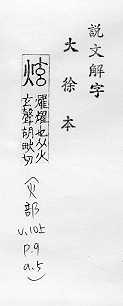 說文解字
大徐本
炫
爓燿也从火
玄聲胡畎切
(火部
v.10上
p.9
a.5)